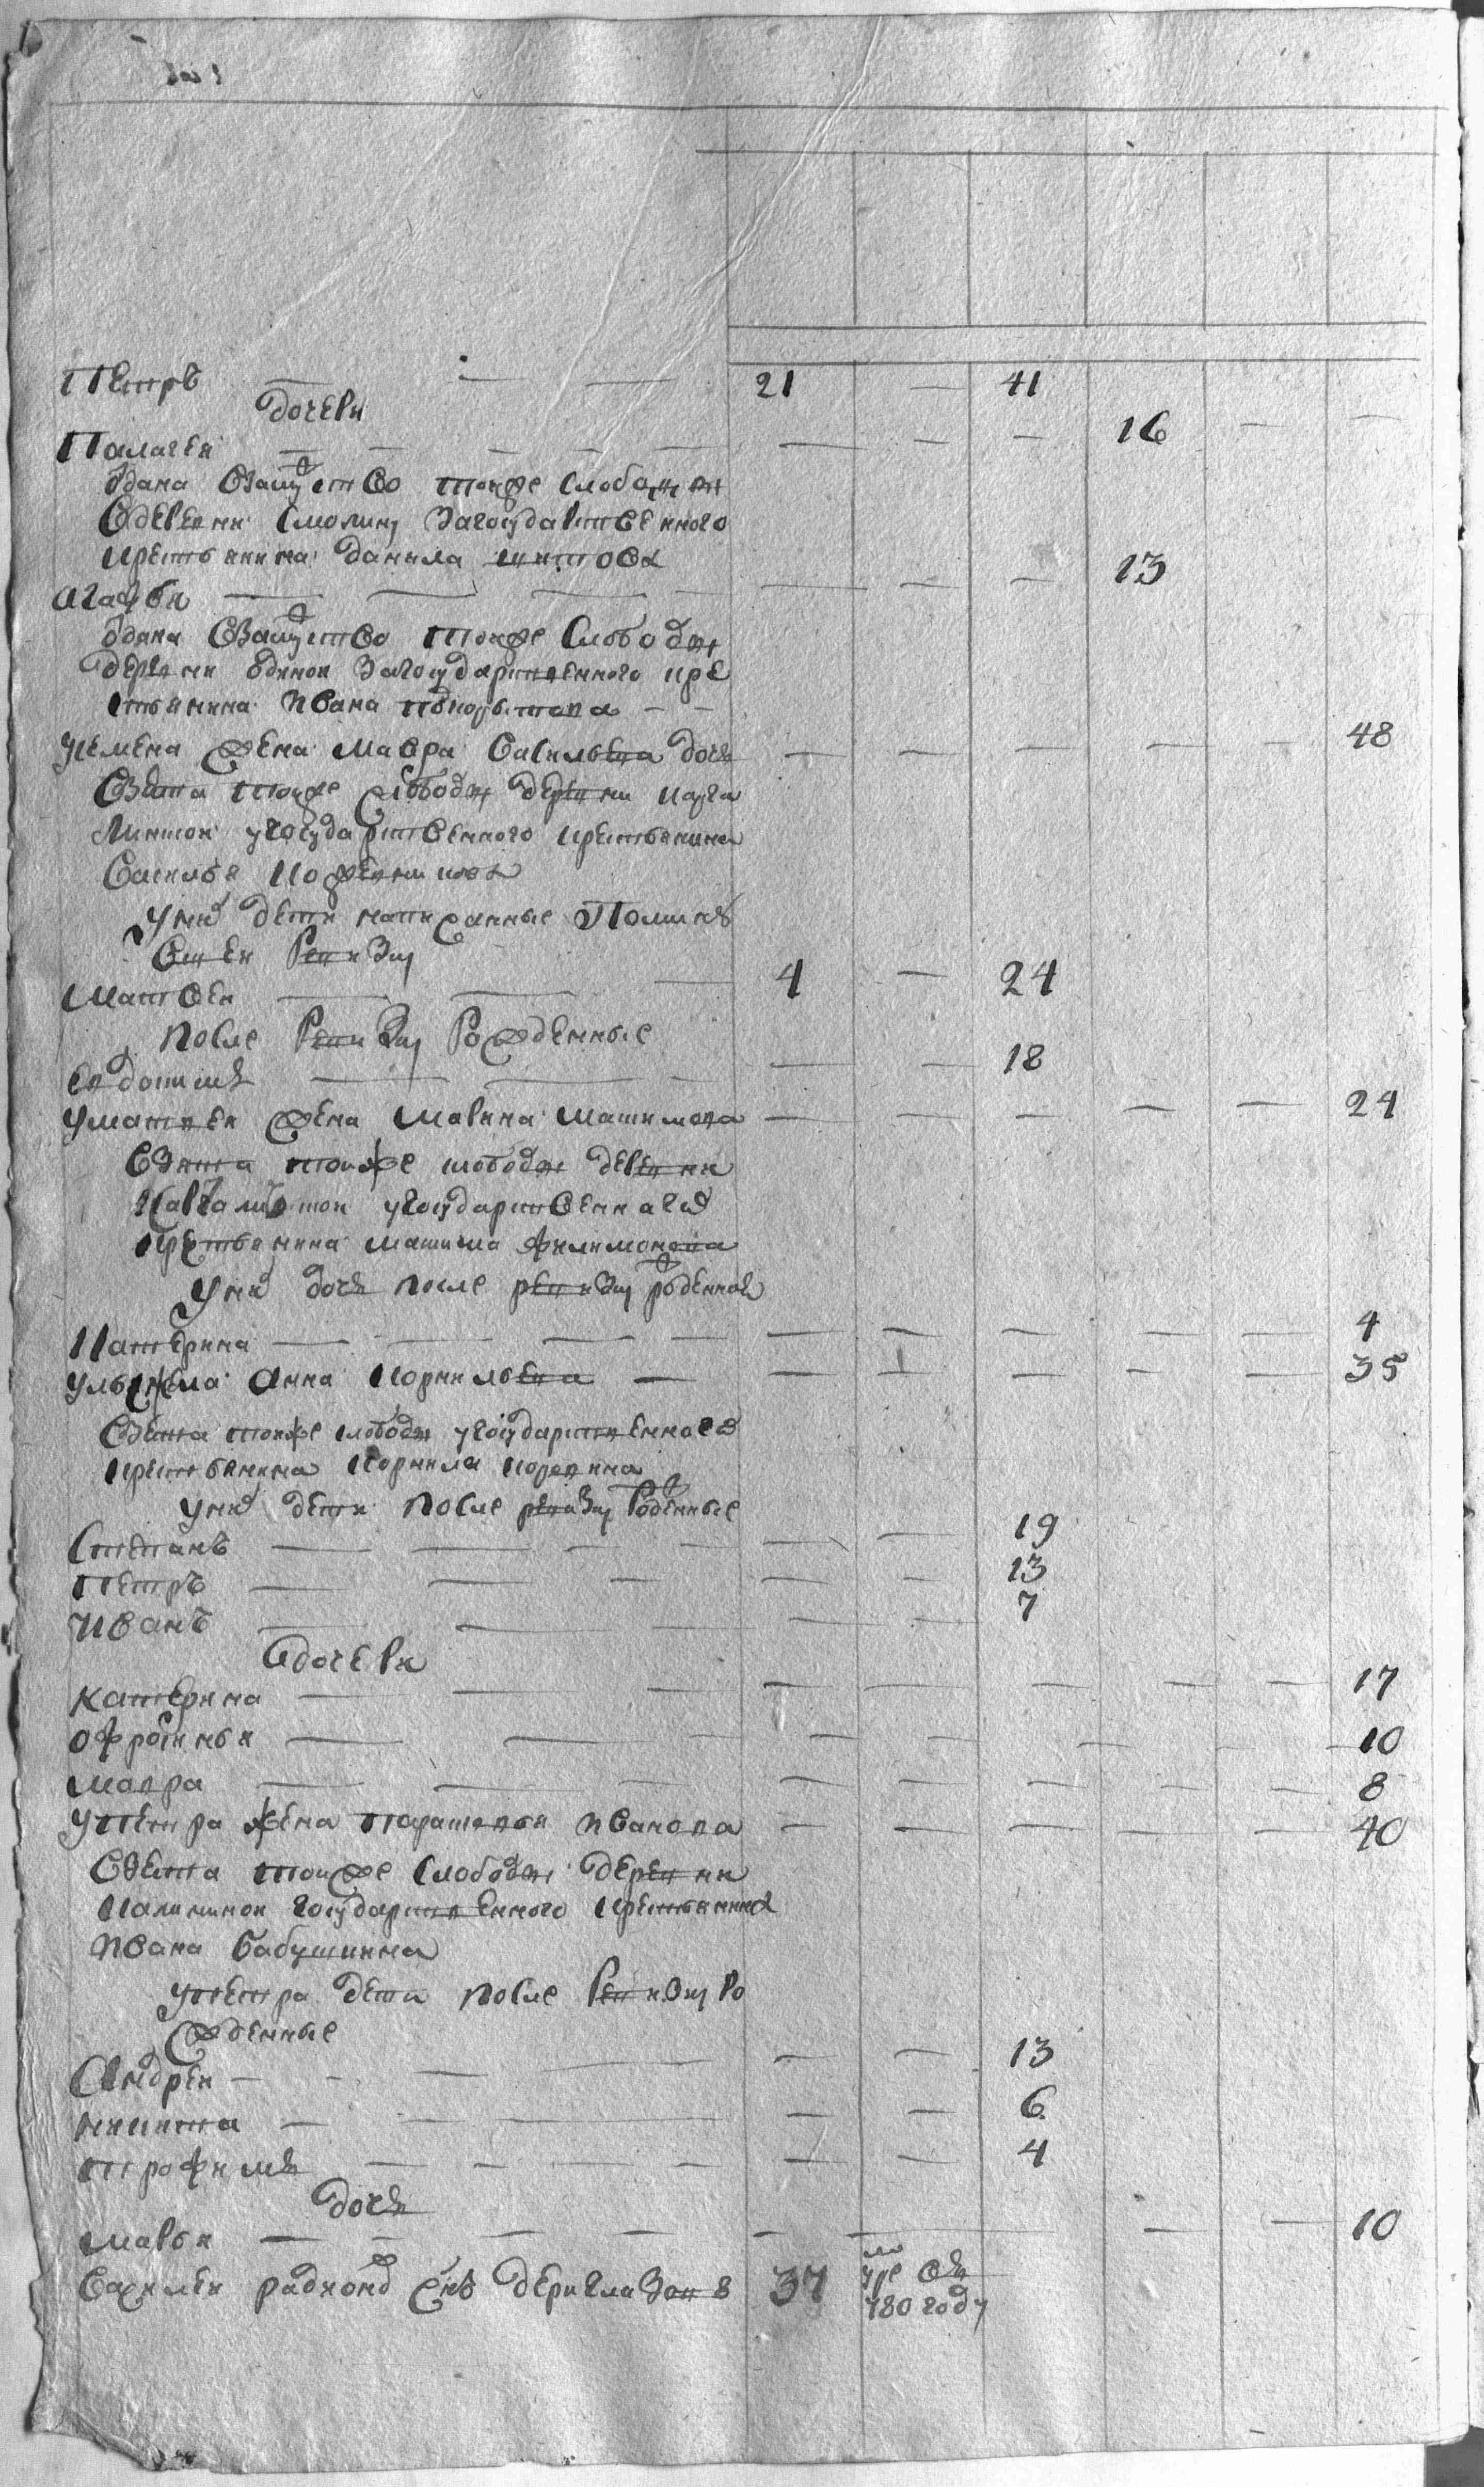 Петръ — — — 21 — 41
дочери
Палагея — — — — — — — — 16 — —
Одана взамужство тоже слободы
вдеревню Смолину загосударственного
крестьянина данила шитова
агафья — — — — — — — 13
Одана взамужство тоже слободы
деревни загосударственного кре
стьянина ивана — —
жена мавра Васильева дочь — — — — — 48
взята тойже слободы деревни
угосударственного крестьянина
Василья Кожевникова
Уних дети написанные Впослед
Ней Ревизиї
Матвей — — — 4 — 24
после Ревизиї Рожденные
евдокимъ — — — — — 18
уматвея жена Марина Макимова — — — — — 24
взята тойже слободы деревни
угосударственнаго
крестьянина макима филимонова
Уних дочь после ревизиї рожденная
Катерина — — — — — — — — — 4
жена Анна Корнильева — — — — — — 35
взята тойже слободы угосударственнаго
крестьянина Корнила
уних дети после ревизиї Рожденные
Степанъ — — — — — — 19
Петръ — — — — — 13
Иванъ — — — — 7
Идочери
Катерина — — — — — — — — 17
офросинья — — — — — — — 10
мавра — — — — — — — — 8
упетра жена парасковья иванова — — — — — 40
взята тойже слободы деревни
калининой государственного крестьянина
ивана бабушкина
упетра дети после Ревизиї Ро
жденные
Андрей — — — — — — 13
никита — — — — — 6
трофимъ — — — — — — 4
дочь
марья — — — — — — — — 10
Василей радионов Снъ дериглазовъ 37 умре въ
780 году